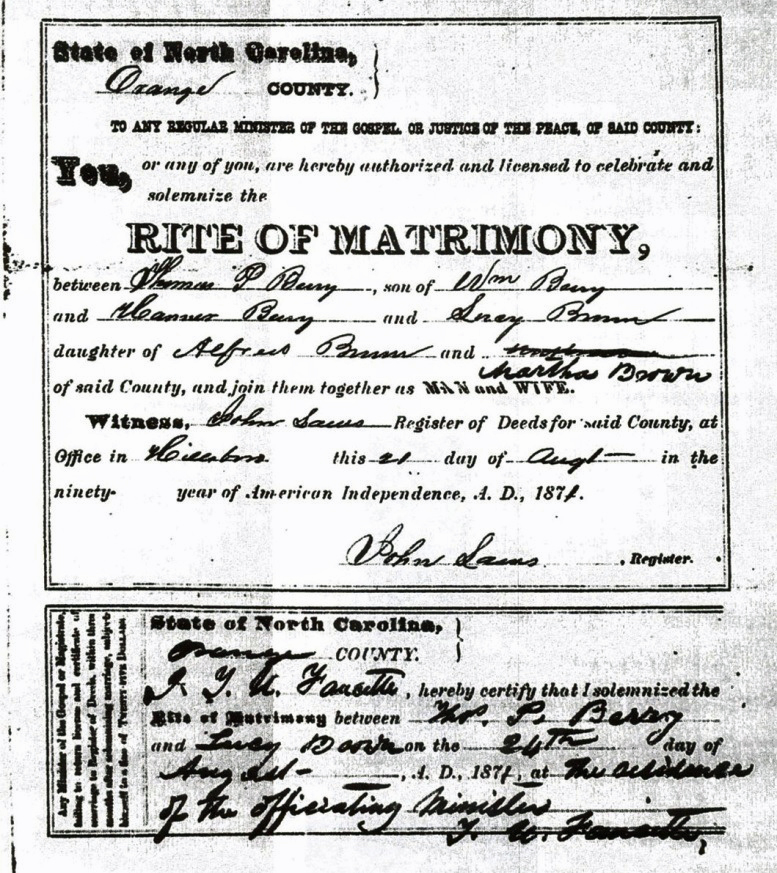 State of North Carolina,
Orange COUNTY.
TO ANY REGULAR MINISTER OF THE GOSPEL, OR JUSTICE OF THE PEACE, OF SAID COUNTY:
You, or any of you, are hereby authorized and licensed to celebrate and
solemnize the
RITE OF MATRIMONY,
between Thomas P Berry, son of Wm Berry
and Berry and Brown
daughter of Alfred Brown and
Martha Brown
of said County, and join them together as MAN and WIFE.
Witness, John Laws Register of Deeds for said County, at
Office in Hillsboro this 21 day of Augt in the
ninety- year of American Independence, A. D., 1874.
John Laws, Register.
Any Minister of the Gospel or Magistrate,
failing to return license and certificate of
marriage to Register of Deeds, within three
months after solemnizing marriage, subjects
himself to a fine of TWENTY-FIVE DOLLARS.
State of North Carolina,
Orange COUNTY.
I, T. U. Faucette, hereby certify that I solemnized the
Rite of Matrimony between Thos. P. Berry
and Lucy Brown on the 24th day of
August, A. D., 1874, at the residence
of the officiating Minister
T. U. Faucette,